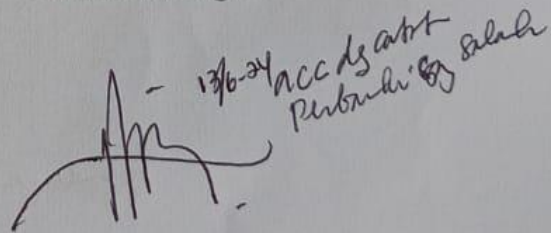 13/6-24 acc dg catat
Perbaiki yg salah